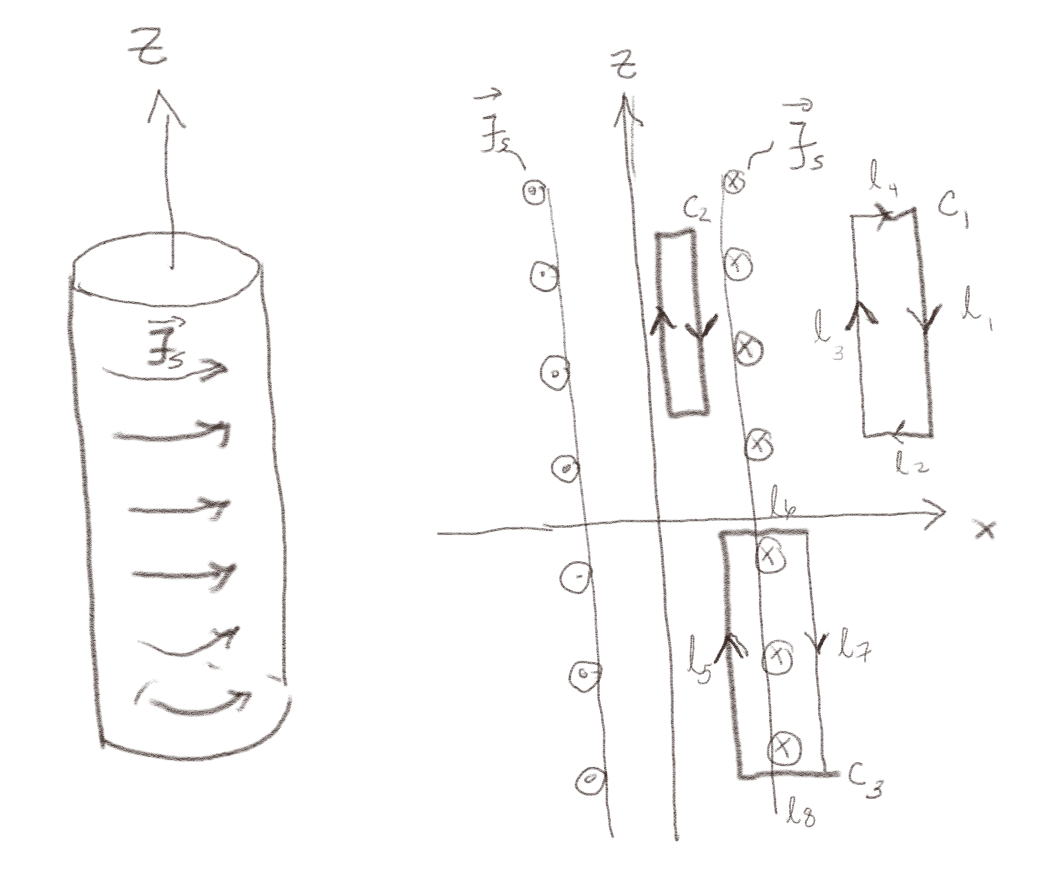 Z
J⃗s
Z
J⃗s
J⃗s
C2
l4
C1
l3
l1
l2
x
l6
l5
l7
C3
l8